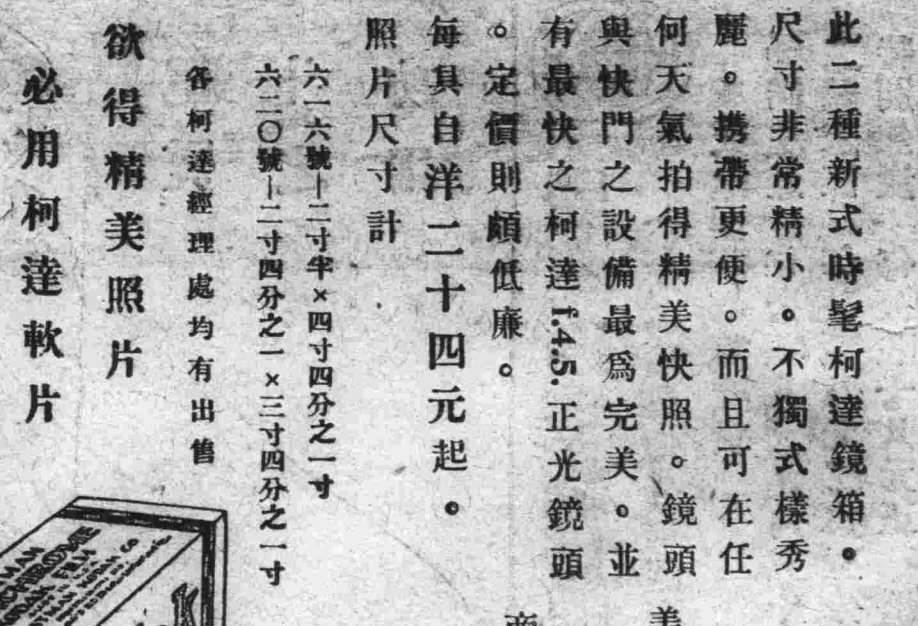 此二種新式時髦柯達鏡箱。
尺寸非常精小。不獨式樣秀
麗。携帶更便。而且可在任
何天氣拍得精美快照。鏡頭
與快門之設備最爲完美。並
有最快之柯達f.4.5.正光鏡頭
。定價則頗低廉。
每具自洋二十四元起。
照片尺寸計
六一六號—二寸半×四寸四分之一寸
六二〇號—二寸四分之一×三寸四分之一寸
各柯達經理處均有出售
欲得精美照片
必用柯達軟片
美